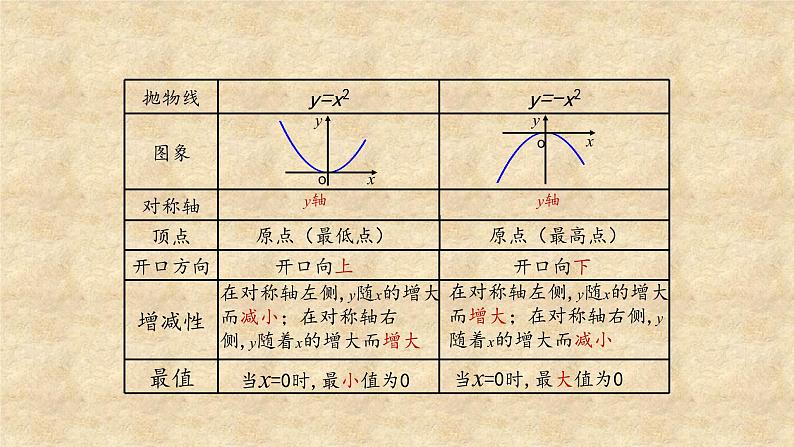 抛物线 y=x² y=-x²
图象 y o x y o x
对称轴 y轴 y轴
顶点 原点（最低点） 原点（最高点）
开口方向 开口向上 开口向下
增减性
在对称轴左侧,y随x的增大
而减小；在对称轴右
侧,y随着x的增大而增大
在对称轴左侧,y随x的增大
而增大；在对称轴右侧,y
随着x的增大而减小
最值 当x=0时,最小值为0 当x=0时,最大值为0